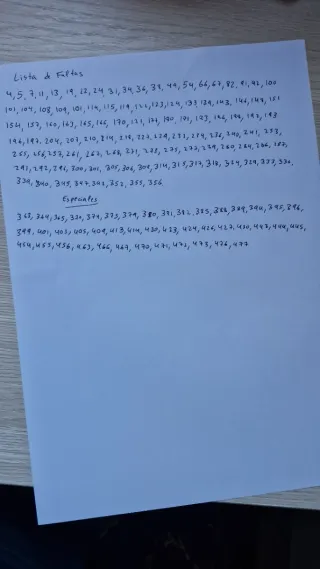 Lista de Faltas
4, 5, 7, 11, 13, 19, 22, 24, 31, 34, 36, 38, 49, 54, 66, 67, 82, 91, 92, 100
101, 104, 108, 109, 101, 114, 115, 119, 122, 123, 124, 133, 139, 143, 146, 148, 151
154, 157, 160, 163, 165, 166, 170, 171, 177, 180, 181, 183, 186, 188, 192, 193
196, 197, 204, 207, 210, 214, 218, 227, 229, 232, 234, 236, 240, 241, 253,
255, 256, 257, 261, 267, 268, 271, 275, 277, 279, 280, 284, 286, 287,
291, 292, 296, 300, 301, 305, 306, 309, 314, 315, 317, 318, 324, 329, 333, 336,
338, 340, 345, 347, 349, 352, 355, 356
Especiales
363, 364, 365, 370, 374, 375, 379, 380, 381, 382, 385, 388, 389, 394, 395, 396,
399, 401, 403, 405, 409, 413, 414, 420, 423, 424, 426, 427, 430, 442, 444, 445,
454, 455, 456, 463, 466, 467, 470, 471, 472, 473, 476, 477